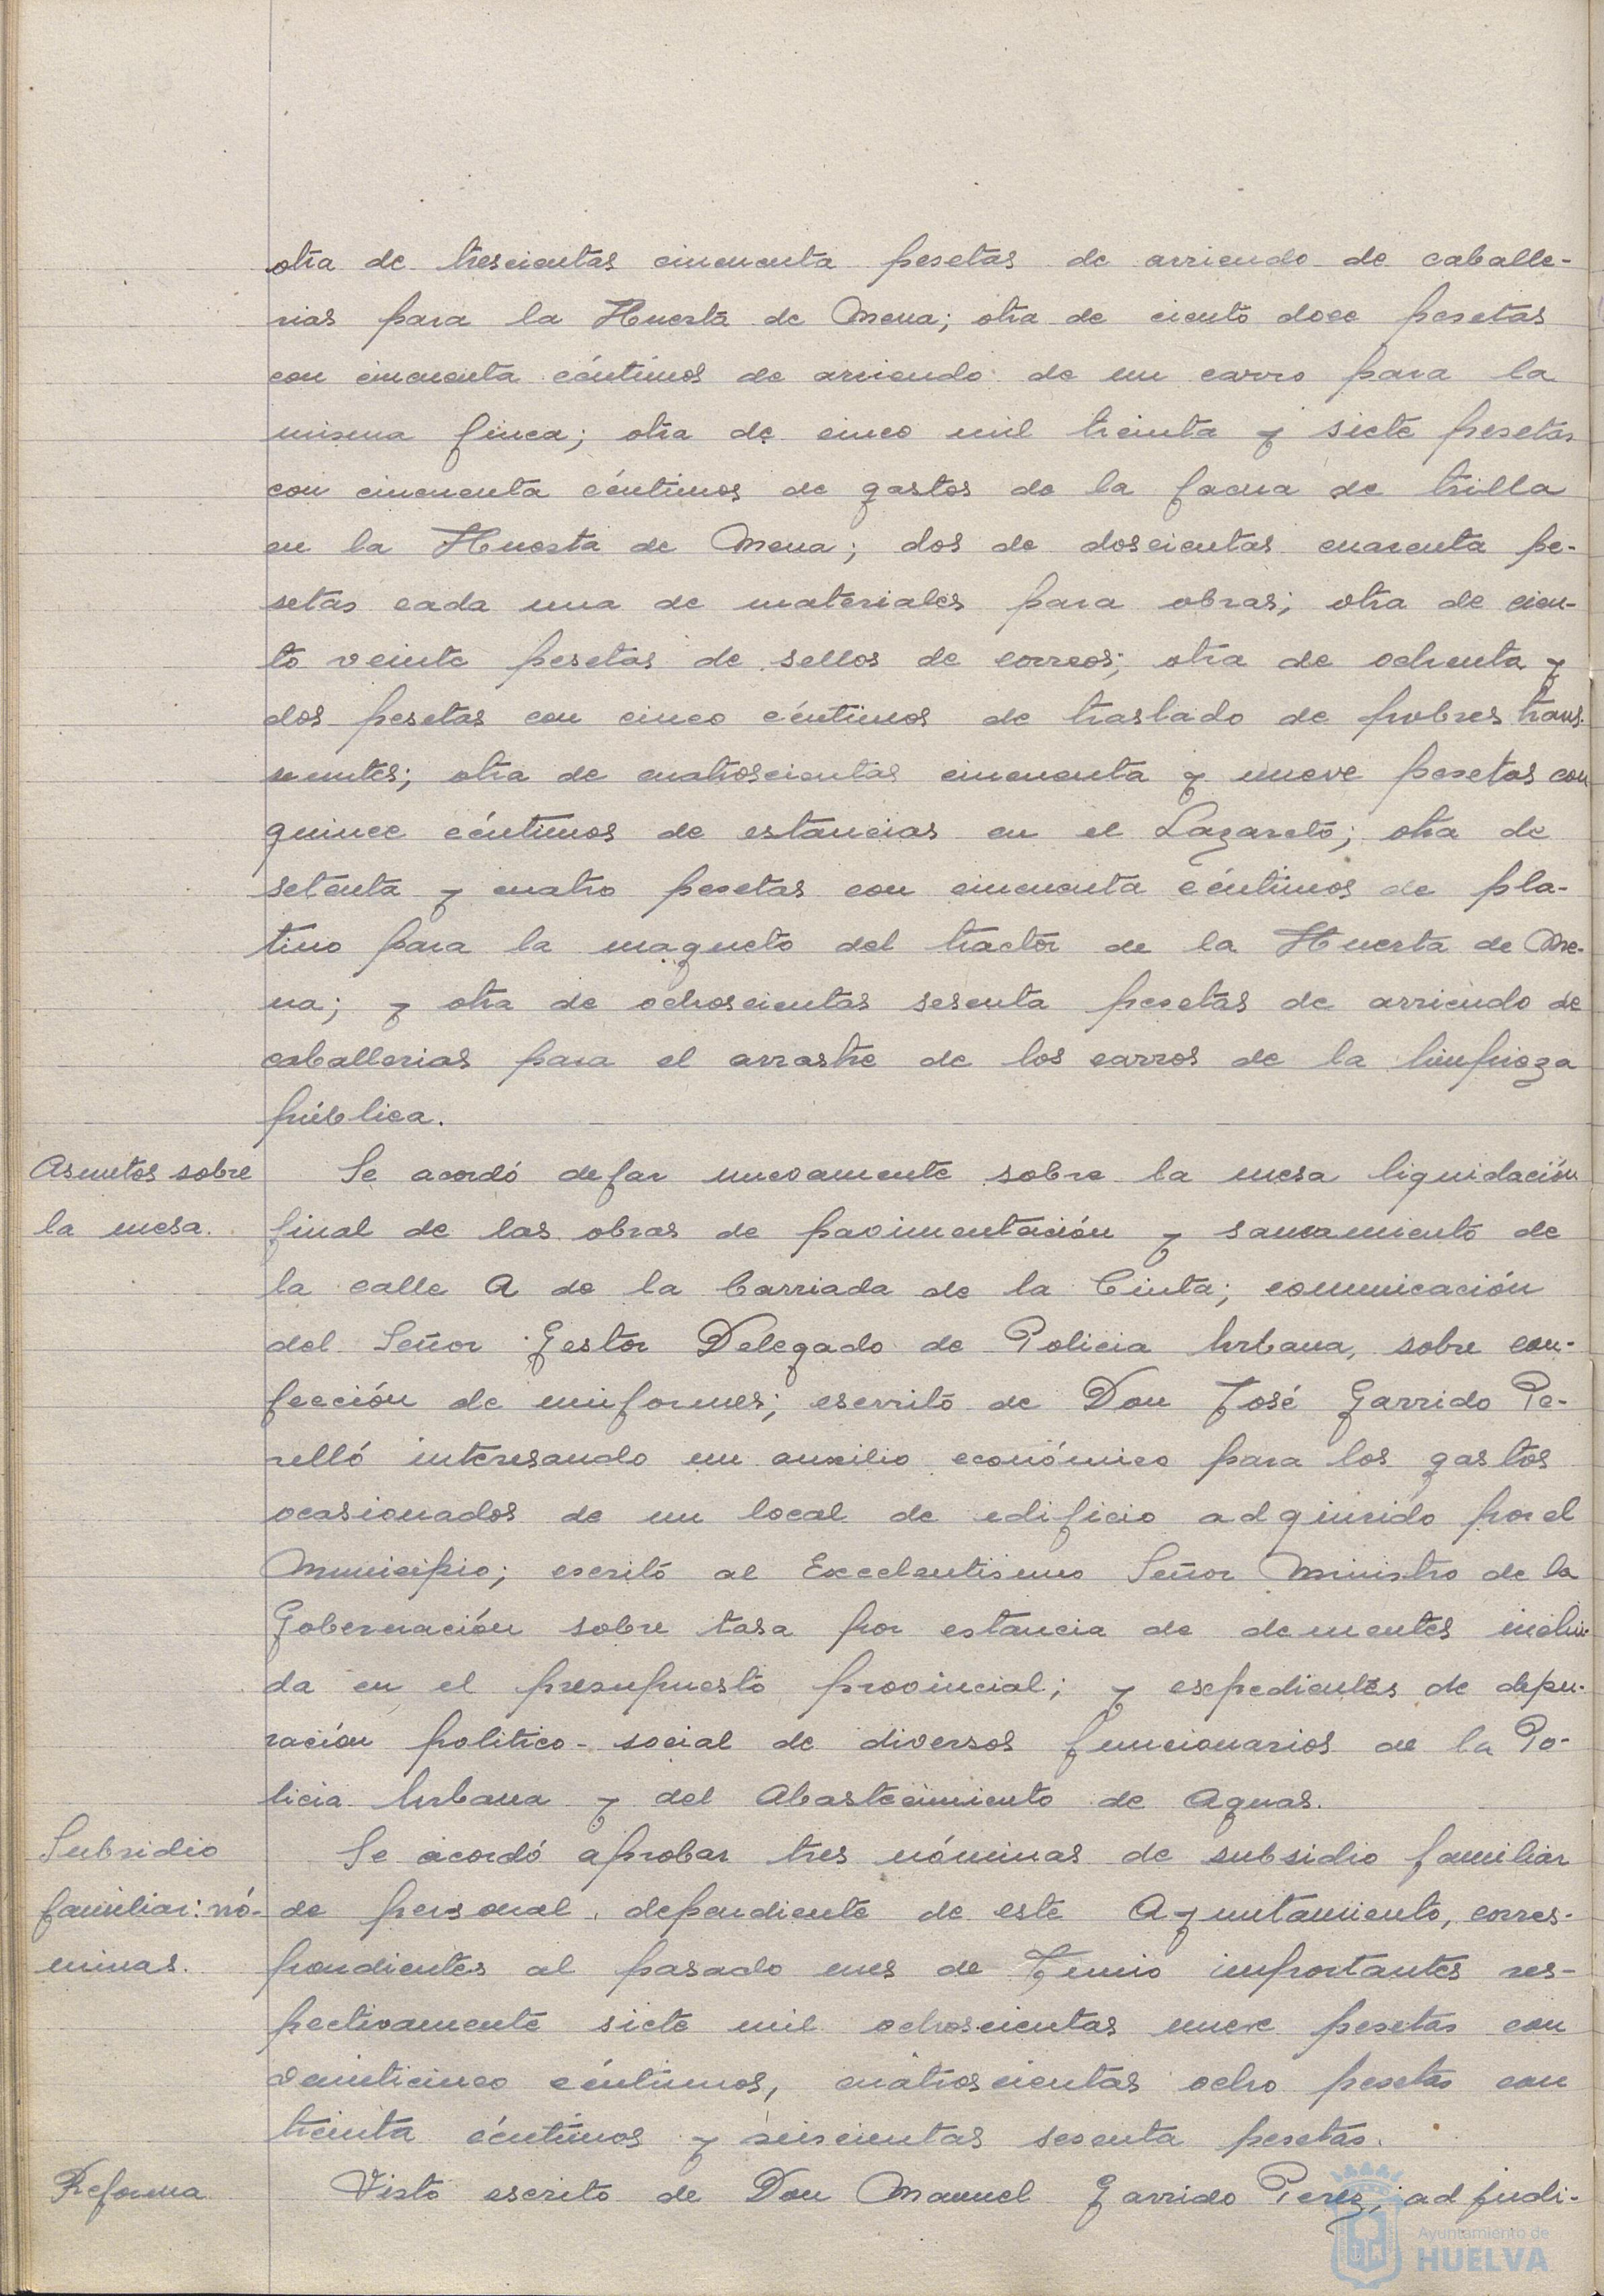 otra de trescientas cincuenta pesetas de arriendo de caballe-
rias para la Huerta de Mena; otra de ciento doce pesetas
con cincuenta céntimos de arriendo de un carro para la
misma finca; otra de cinco mil treinta y siete pesetas
con cincuenta céntimos de gastos de la faena de trilla
en la Huerta de Mena; dos de doscientas cuarenta pe-
setas cada una de materiales para obras; otra de cien-
to veinte pesetas de sellos de correos; otra de ochenta y
dos pesetas con cinco céntimos de traslado de pobres tran-
seuntes; otra de cuatroscientas cincuenta y nueve pesetas con
quince céntimos de estancias en el Lazareto; otra de
setenta y cuatro pesetas con cincuenta céntimos de pla-
tino para la magneto del tractor de la Huerta de Me-
na; y otra de ochoscientas sesenta pesetas de arriendo de
caballerias para el arrastre de los carros de la limpieza
pública.
Asuntos sobre
la mesa.
Se acordó dejar nuevamente sobre la mesa liquidación
final de las obras de pavimentación y saneamiento de
la calle A de la barriada de la Cinta; comunicación
del Señor Gestor Delegado de Policia Urbana, sobre con-
fección de uniformes; escrito de Don José Garrido Pe-
relló interesando un auxilio económico para los gastos
ocasionados de un local de edificio adquirido por el
Municipio; escrito al Excelentisimo Señor Ministro de la
Gobernación sobre tasa por estancia de dementes inclui-
da en el presupuesto provincial; y expedientes de depu-
ración politico-social de diversos funcionarios de la Po-
licia Urbana y del Abastecimiento de Aguas.
Subsidio
familiar: nó-
minas.
Se acordó aprobar tres nóminas de subsidio familiar
de personal dependiente de este Ayuntamiento, corres-
pondientes al pasado mes de Junio importantes res-
pectivamente siete mil ochoscientas nueve pesetas con
veinticinco céntimos, cuatroscientas ocho pesetas con
treinta céntimos y seiscientas sesenta pesetas.
Reforma
Visto escrito de Don Manuel Garrido Perez, adjudi-
Ayuntamiento de
HUELVA